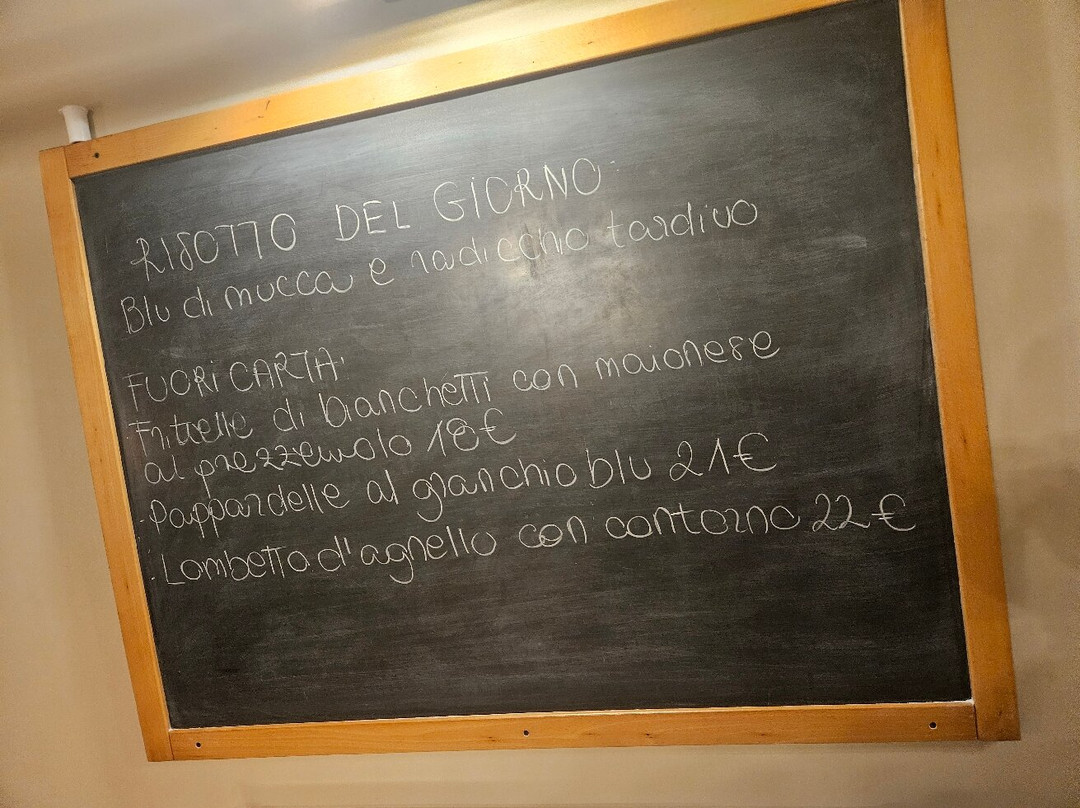 RISOTTO DEL GIORNO:
Blu di mucca e radicchio tardivo
FUORI CARTA:
·Frittelle di bianchetti con maionese
al prezzemolo 18€
·Pappardelle al granchio blu 21€
·Lombetto d'agnello con contorno 22€